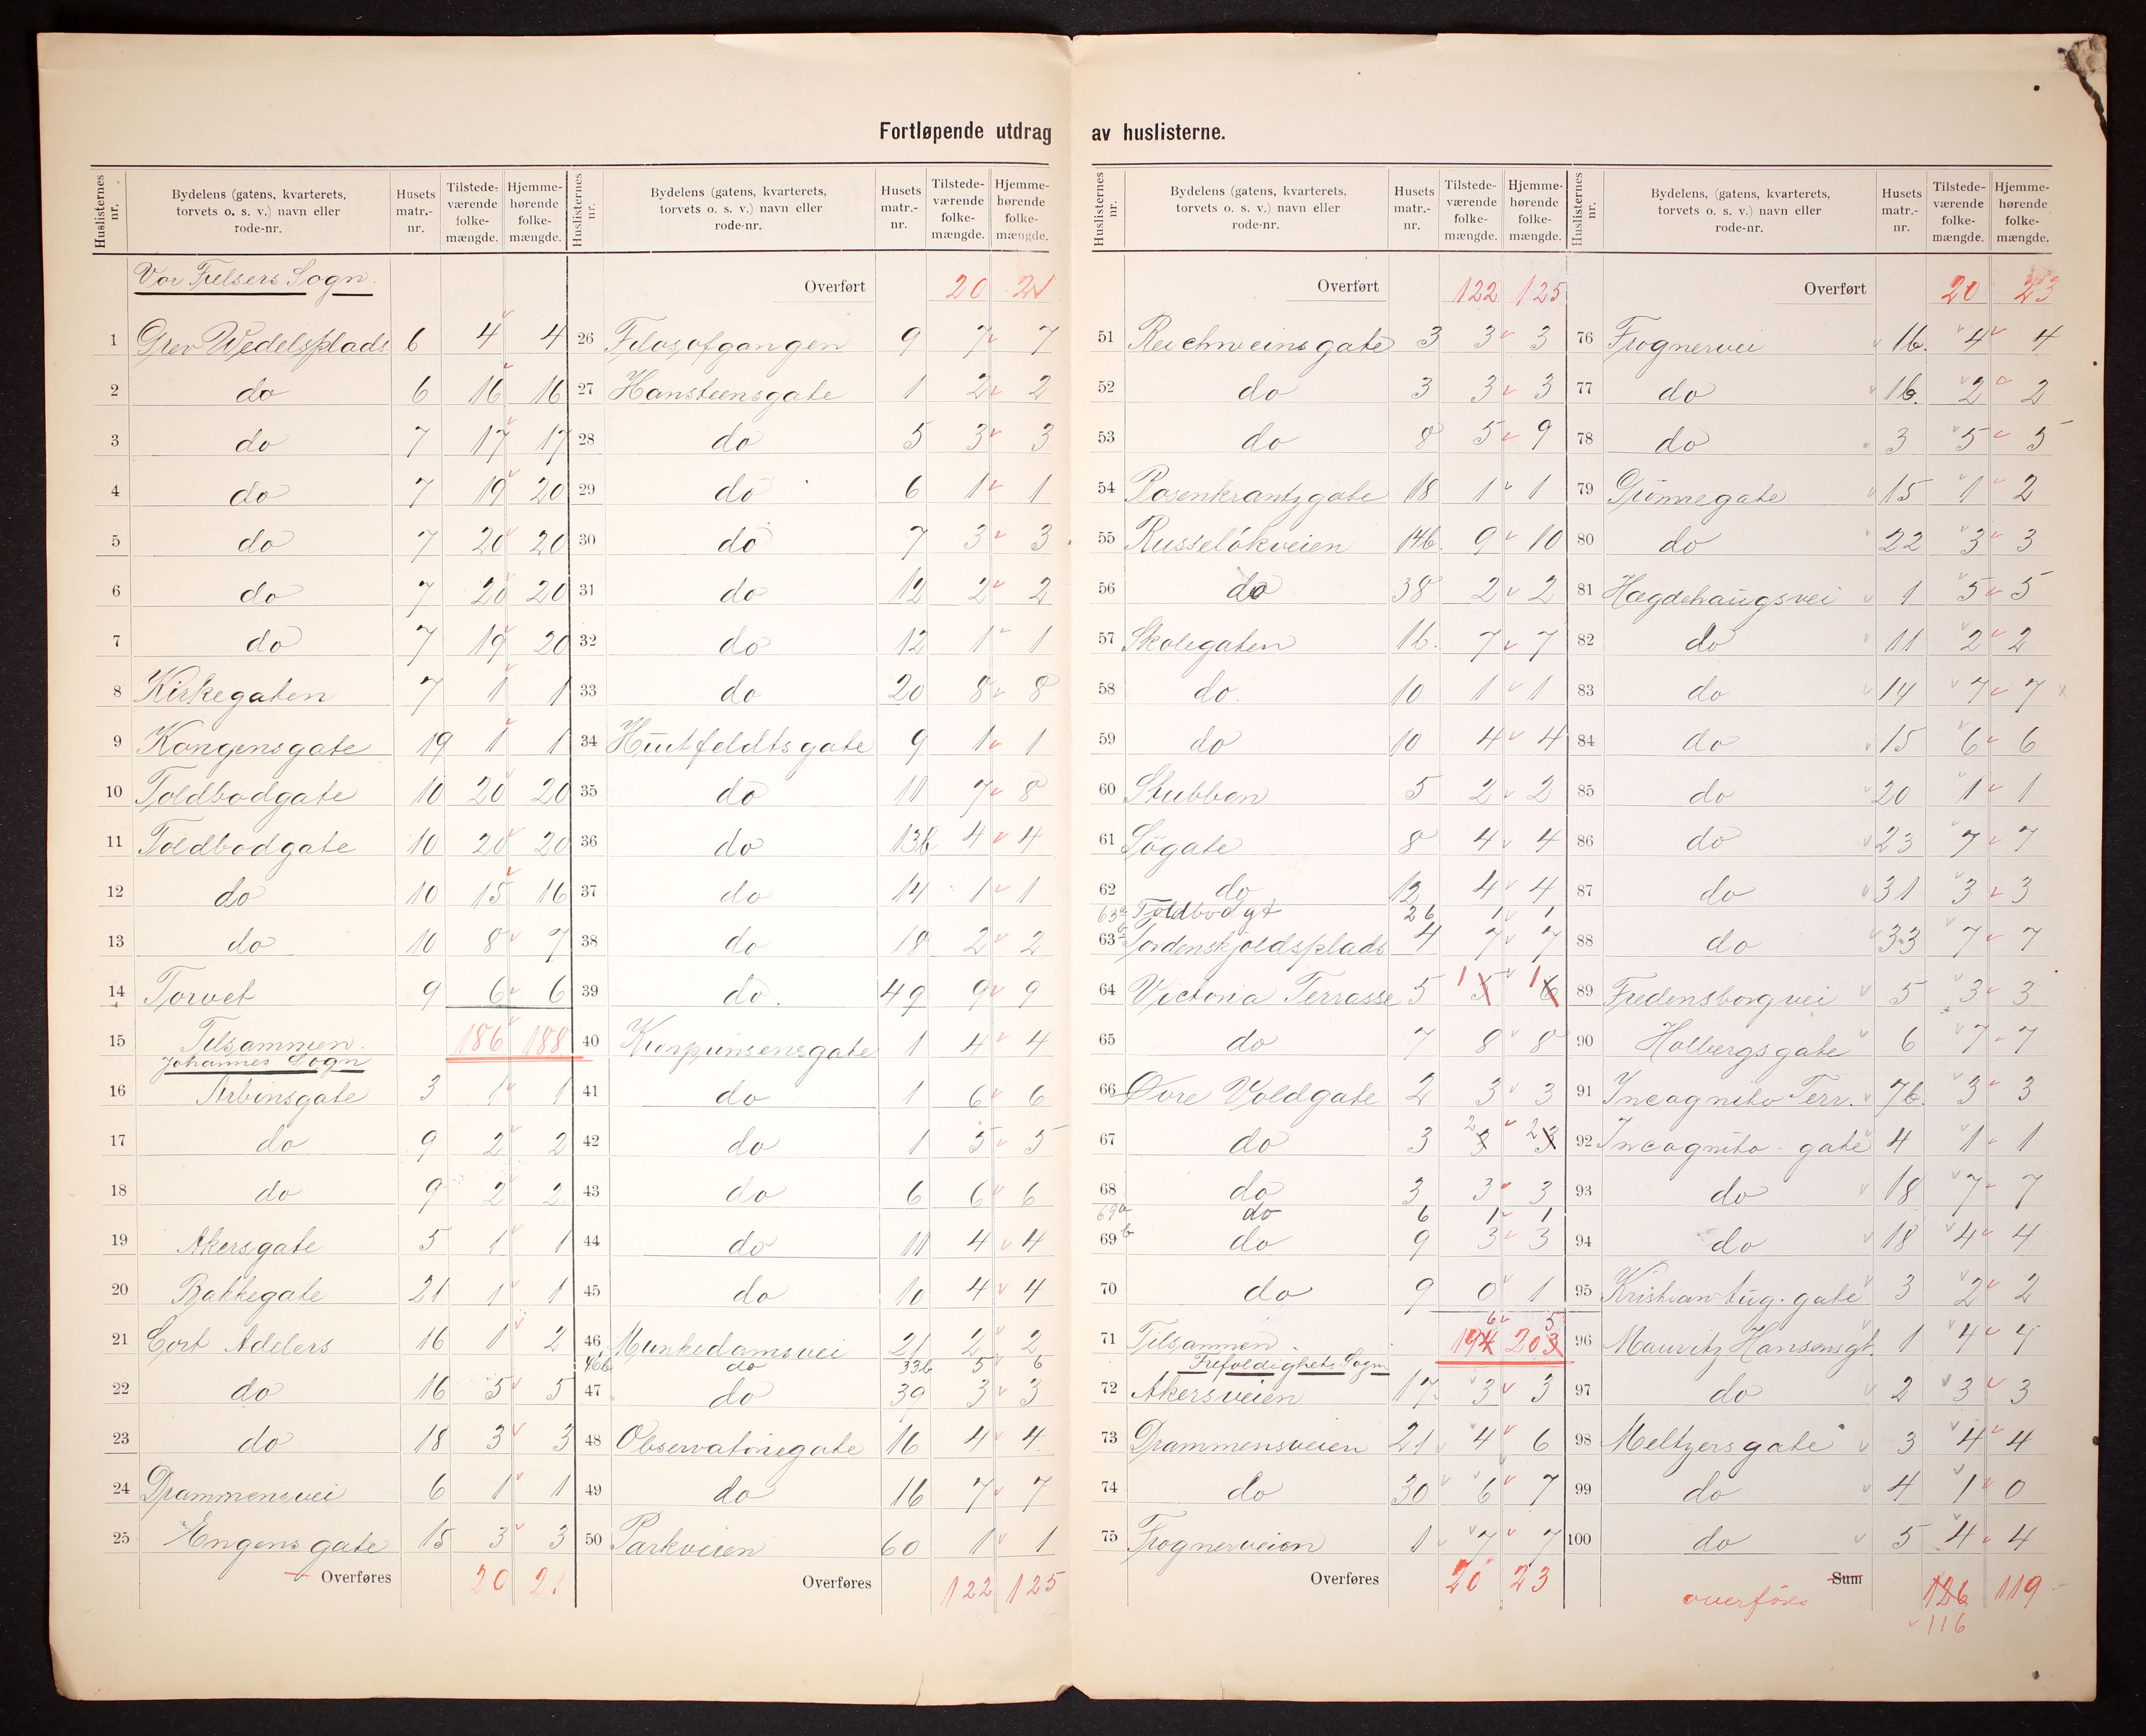 Fortløpende utdrag av huslisterne.
Huslisternes nr.
Bydelens (gatens, kvarterets, torvets o. s. v.) navn eller rode-nr.
Husets matr.-nr.
Tilstede-værende folke-mængde.
Hjemme-hørende folke-mængde.
Vor Frelsers Sogn.
1 Grev Wedelsplads 6 4 4
2 do 6 16 16
3 do 7 17 17
4 do 7 19 20
5 do 7 20 20
6 do 7 20 20
7 do 7 19 20
8 Kirkegaten 7 1 1
9 Kongensgate 19 1 1
10 Toldbodgate 10 20 20
11 Toldbodgate 10 20 20
12 do 10 15 16
13 do 10 8 7
14 Torvet 9 6 6
15 Tilsammen. 186 188
Johannes Sogn
16 Arbinsgate 3 1 1
17 do 9 2 2
18 do 9 2 2
19 Akersgate 5 1 1
20 Bakkegate 21 1 1
21 Cort Adelers 16 1 2
22 do 16 5 5
23 do 18 3 3
24 Drammensvei 6 1 1
25 Engens gate 15 3 3
Overføres 20 21
Huslisternes nr.
Bydelens (gatens, kvarterets, torvets o. s. v.) navn eller rode-nr.
Husets matr.-nr.
Tilstede-værende folke-mængde.
Hjemme-hørende folke-mængde.
Overført 20 21
26 Filosofgangen 9 7 7
27 Hansteensgate 1 2 2
28 do 5 3 3
29 do 6 1 1
30 do 7 3 3
31 do 12 2 2
32 do 12 1 1
33 do 20 8 8
34 Huitfeldtsgate 9 1 1
35 do 11 7 8
36 do 13b 4 4
37 do 14 1 1
38 do 18 2 2
39 do. 49 9 9
40 Kronprinsensgate 1 4 4
41 do 1 6 6
42 do 1 5 5
43 do 6 6 6
44 do 11 4 4
45 do 10 4 4
46 Munkedamsvei 21 2 2
46b do 33b 5 6
47 do 39 3 3
48 Observatoriegate 16 4 4
49 do 16 7 7
50 Parkveien 60 1 1
Overføres 122 125
Huslisternes nr.
Bydelens (gatens, kvarterets, torvets o. s. v.) navn eller rode-nr.
Husets matr.-nr.
Tilstede-værende folke-mængde.
Hjemme-hørende folke-mængde.
Overført 122 125
51 Reichweinsgate 3 3 3
52 do 3 3 3
53 do 8 5 9
54 Rosenkrantzgate 18 1 1
55 Russeløkveien 14b. 9 10
56 do 38 2 2
57 Skolegaten 1b. 7 7
58 do. 10 1 1
59 do 10 4 4
60 Stubben 5 2 2
61 Søgate 8 4 4
62 do 12 4 4
63a Toldbodgt 26 1 1
63b Tordenskjoldsplads 4 7 7
64 Victoria Terrasse 5 1 5 1 6
65 do 7 8 8
66 Øvre Voldgate 2 3 3
67 do 3 2 3 2 3
68 do 3 3 3
69a do 6 1 1
69b do 9 3 3
70 do 9 0 1
71 Tilsammen. 194 6 203 5
Trefoldighets Sogn
72 Akersveien 17 3 3
73 Drammensveien 21 4 6
74 do 30 6 7
75 Frognerveien 1 7 7
Overføres 20 23
Huslisternes nr.
Bydelens, (gatens, kvarterets, torvets o. s. v.) navn eller rode-nr.
Husets matr.-nr.
Tilstede-værende folke-mængde.
Hjemme-hørende folke-mængde.
Overført 20 23
76 Frognervei 16. 4 4
77 do 16. 2 2
78 do 3 5 5
79 Grönnegate 15 1 2
80 do 22 3 3
81 Hægdehaugsvei 1 5 5
82 do 11 2 2
83 do 14 7 7
84 do 15 6 6
85 do 20 1 1
86 do 23 7 7
87 do 31 3 3
88 do 33 7 7
89 Fredensborgvei 5 3 3
90 Holbergsgate 6 7 7
91 Incognito Terr. 7b. 3 3
92 Incognito-gate 4 1 1
93 do 18 7 7
94 do 18 4 4
95 Kristian Aug. gate 3 2 2
96 Mauritz Hansensgt. 1 4 4
97 do 2 3 3
98 Meltzersgate 3 4 4
99 do 4 1 0
100 do 5 4 4
Sum
overføres 126 119
116